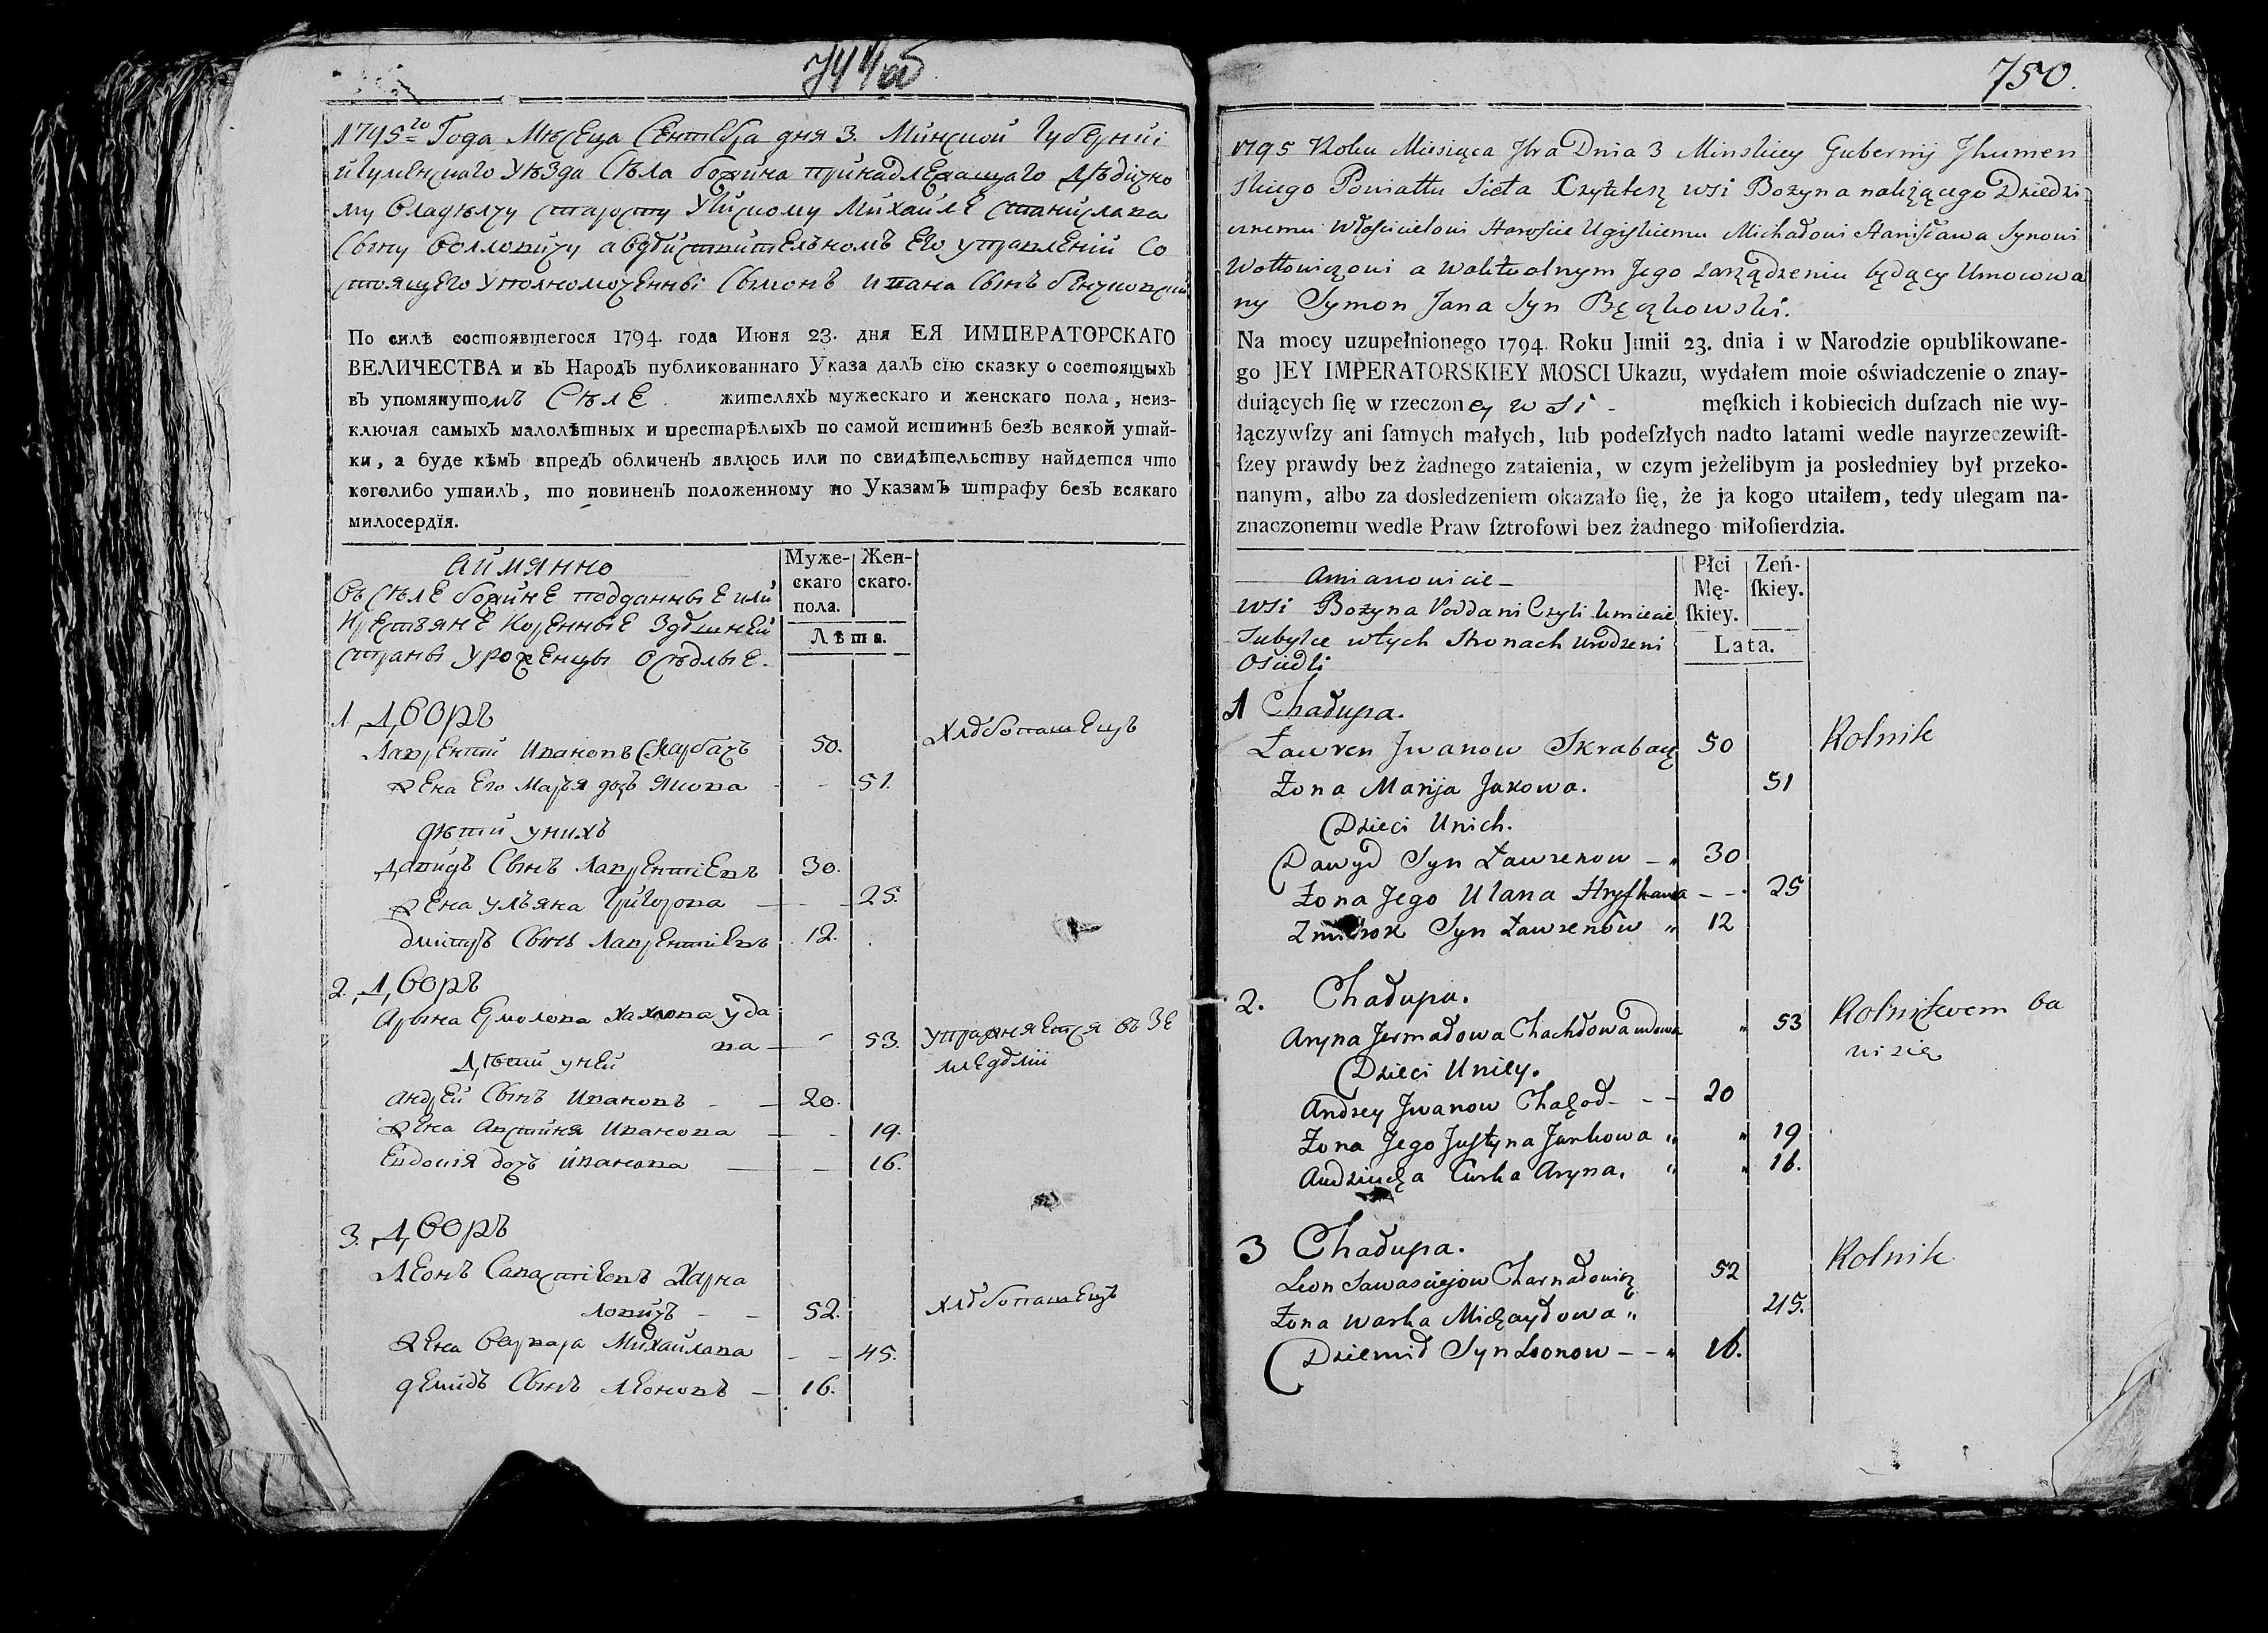 1795го Года Месеца Сентебра дня 3. Минской Губерніи
Игуменскаго Уѣзда Села Божина принадлежащаго Дѣдично
му Владѣлцу старосту Угискому Михайле станислава
Сыну Волловичу а
стоящего Уполномоченны Сымонъ Ивана Сынъ Бенчковскій
По силѣ состоявшегося 1794. года Июня 23. дня ЕЯ ИМПЕРАТОРСКАГО
ВЕЛИЧЕСТВА и въ Народъ публикованнаго Указа далъ сїю сказку о состоящыхъ
въ упомянутомъ Селе жителяхъ мужескаго и женскаго пола, неиз-
ключая самыхъ малолѣтныхъ и престарѣлыхъ по самой истиннѣ безъ всякой утай-
ки, а буде кѣмъ впредъ обличенъ явлюсь или по свидѣтельству найдется что
коголибо утаилъ, то повиненъ положенному по Указамъ штрафу безъ всякаго
милосердїя.
аймянно
Въ Селе божине подданные или
Крестьяне Коренные Здешней
страны Уроженцы Оседлые.
Муже-
скаго
пола.
Жен-
скаго.
Лѣта.
1 Дворъ
Лаврентий Ивановъ Скарбачъ 50. Хлебопашецъ
Жена Его Марья дочъ Якова 51.
дети у нихъ
Давидъ Сынъ Лаврентіевъ 30.
Жена ульяна Григорова 25.
дмитръ Сынъ Лаврентіевъ 12.
2. Дворъ
Арына Ермолова Хахлова удо
ва 53. упражняется въ зе
мледелии
Дети у ней
Андрей Сынъ Ивановъ 20.
Жена Австиня Иванова 19.
Евдокия дочъ иванова 16.
3. Дворъ
Леонъ Савастіевъ Харна
ловичъ 52. Хлебопашецъ
Жена Варвара Михайлава 45.
демидъ Сынъ Леоновъ 16.
750.
1795 Roku Miesiąca 7bra Dnia 3 Minskiey Gubernij Jhumen
skiego Powiattu Sieła wsi Bożyna należącego Dziedzi
cznemu Włościcielowi Staroście Ugiskiemu Michałowi Stanisława Synowi
Wołłowiczowi a Waktualnym Jego zarządzeniu będący Umocowa
ny Symon Jana Syn Bęczkowski.
Na mocy uzupełnionego 1794. Roku Junii 23. dnia i w Narodzie opublikowane-
go JEY IMPERATORSKIEY MOSCI Ukazu, wydałem moie oświadczenie o znay-
duiących ſię w rzeczoney wsi - męſkich i kobiecich duſzach nie wy-
łączywſzy ani ſamych małych, lub podeſzłych nadto latami wedle nayrzeczewiſt-
ſzey prawdy bez żadnego zataienia, w czym jeżelibym ja posledniey był przeko-
nanym, albo za dosledzeniem okazało ſię, że ja kogo utaiłem, tedy ulegam na-
znaczonemu wedle Praw ſztrofowi bez żadnego miłoſierdzia.
Amianowicie
wsi Bożyna Poddani Czyli kmiecie
Subylce wtych Stronach urodzeni
Osiedli
Płci
Mę-
ſkiey.
Zeń-
ſkiey.
Lata.
1 Chałupa.
Ławren Jwanow Skrabacz 50 Rolnik
Żona Marija Jakowa. 51
Dzieci Unich.
Dawyd Syn Ławrenow 30
Żona Jego Ulana Hryszkowa 25
Syn Ławrenow 12
2. Chałupa.
Aryna Jermałowa Chachłowa wdowa 53 Rolnictwem ba
wi się
Dzieci Uniey.
Andrzey Jwanow 20
Żona Jego Justyna Jankowa 19
Curka Aryna. 16.
3 Chałupa.
Leon Sawasciejow Charnałowicz 52 Rolnik
Żona Warka Michayłowa 45.
Dziemid Syn Leonow 16.